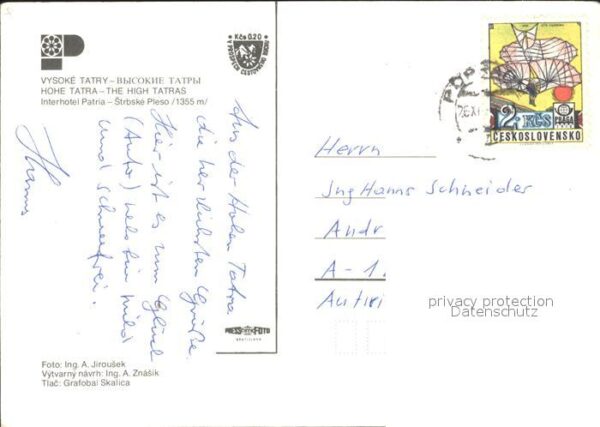 Kčs 0,20
V PROSPECH CESTOVNÉHO RUCHU
VYSOKÉ TATRY – ВЫСОКИЕ ТАТРЫ
HOHE TATRA – THE HIGH TATRAS
Interhotel Patria – Štrbské Pleso /1355 m/
Aus der Hohen Tatra
die herzlichsten Grüße.
Hier ist es zum Glück
(Auto) nebelfrei mild
und schneefrei.
Hanns
PRESSFOTO
BRATISLAVA
Foto: Ing. A. Jiroušek
Výtvarný návrh: Ing. A. Znášik
Tlač: Grafobal Skalica
POP
2 Kčs
PRAGA
ČESKOSLOVENSKO
Herrn
Ing Hanns Schneider
Andr
A-1
privacy protection
Datenschutz